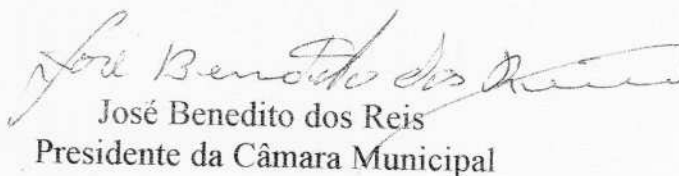 José Benedito dos Reis
José Benedito dos Reis
Presidente da Câmara Municipal